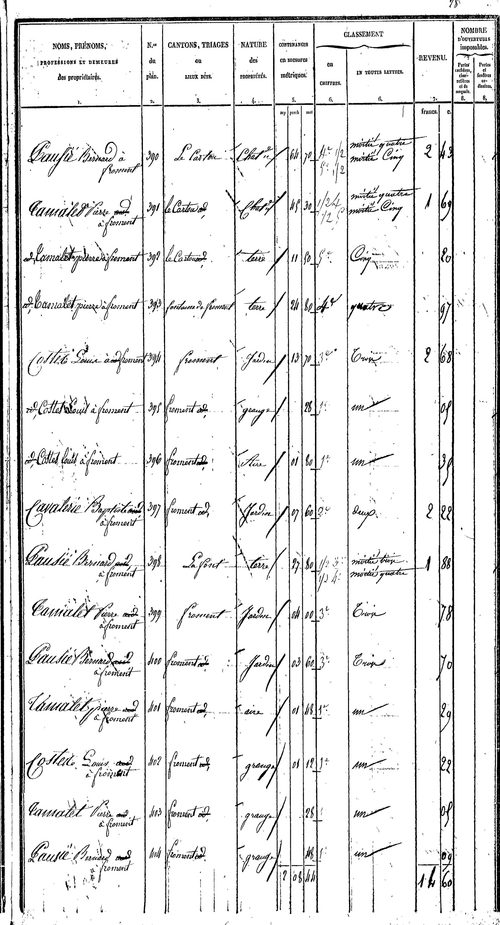 NOMS, PRÉNOMS, PROFESSIONS ET DEMEURES des propriétaires. N.os du plan. CANTONS, TRIAGES ou LIEUX DITS. NATURE des PROPRIÉTÉS. CONTENANCES en mesures métriques. CLASSEMENT en CHIFFRES. EN TOUTES LETTRES. REVENU. NOMBRE D'OUVERTURES imposables.
1. 2. 3. 4. 5. 6. 6. 7. 8. 8.
francs. c.
Pausié Bernard à froment 390 Chat. 64 70 4e 1/2 5e 1/2 moitié quatre moitié Cinq 2 43
Tamalet Pierre à froment 391 45 30 1/2 4 1/2 5 moitié quatre moitié Cinq 1 69
Tamalet pierre à froment 392 terre 11 50 5e Cinq 20
Tamalet pierre à froment 393 fontaine de froment terre 24 80 4e quatre 97
Costes Louis à froment 394 froment Jardin 13 70 3e Trois 2 68
Costes Louis à froment 395 froment grange 28 1e un 05
Costes louis à froment 396 froment Aire 01 80 1e un 35
Cavalerie Baptiste à froment 397 froment Jardin 07 60 2e deux 2 22
Pausié Bernard à froment 398 La font terre 27 80 1/2 3 1/2 4 moitié trois moitié quatre 1 88
Tamalet Pierre à froment 399 froment Jardin 04 00 3e Trois 78
Pausié Bernard à froment 400 froment Jardin 03 60 3e Trois 70
Tamalet pierre à froment 401 froment aire 01 48 1e un 29
Costes Louis à froment 402 froment grange 01 12 1e un 22
Tamalet Pierre à froment 403 froment grange 28 1 un 05
Pausié Bernard à froment 404 froment grange 48 1 un 09
2 08 44 14 60